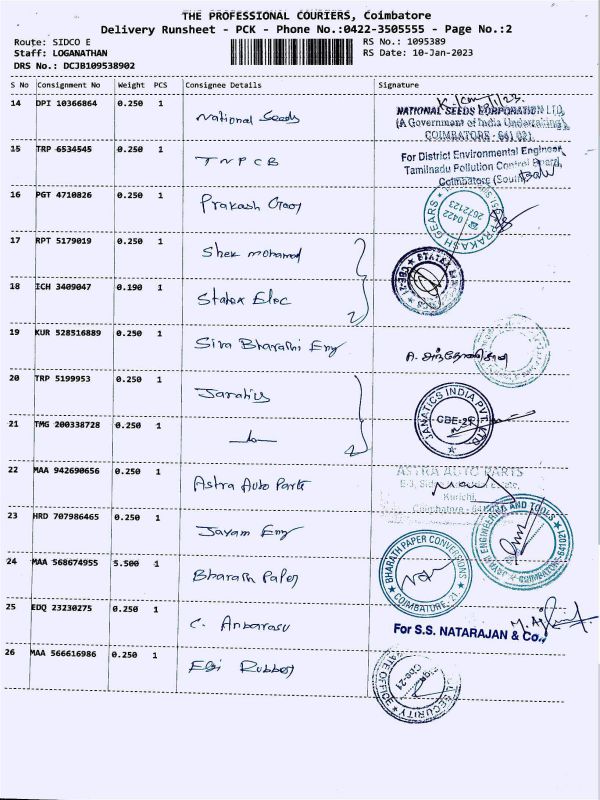 THE PROFESSIONAL COURIERS, Coimbatore
Delivery Runsheet - PCK - Phone No.:0422-3505555 - Page No.:2
Route: SIDCO E
RS No.: 1095389
Staff: LOGANATHAN
RS Date: 10-Jan-2023
DRS No.: DCJB109538902
S No Consignment No Weight PCS Consignee Details Signature
14 DPI 10366864 0.250 1 National Seeds
NATIONAL SEEDS CORPORATION LTD.
(A Government of India Undertaking)
COIMBATORE - 641 021
15 TRP 6534545 0.250 1 TNPCB
For District Environmental Engineer,
Tamilnadu Pollution Control Board,
Coimbatore (South)
16 PGT 4710826 0.250 1 Prakash
PRAKASH GEARS
0422
2672123
17 RPT 5179019 0.250 1 Shek mohamed
18 ICH 3409047 0.190 1 Statex Elec
2
STATEX
CBE-21
19 KUR 528516889 0.250 1 Siva Bharathi Eng
20 TRP 5199953 0.250 1 Janatics
21 TMG 200338728 0.250 1
2
JANATICS INDIA PVT. LTD
CBE-21
22 MAA 942690656 0.250 1 Astra Auto Parts
ASTRA AUTO PARTS
Kurichi,
23 HRD 707986465 0.250 1 Jayam Eng
JAYAM ENGINEERING AND TOOLS
COIMBATORE - 641021
24 MAA 568674955 5.500 1 Bharath Paper
BHARATH PAPER CONVERSIONS
COIMBATORE. 21
25 EDQ 23230275 0.250 1 C. Anbarasu
For S.S. NATARAJAN & Co.,
26 MAA 566616986 0.250 1 Elgi Rubber
SECURITY
Cbe-21